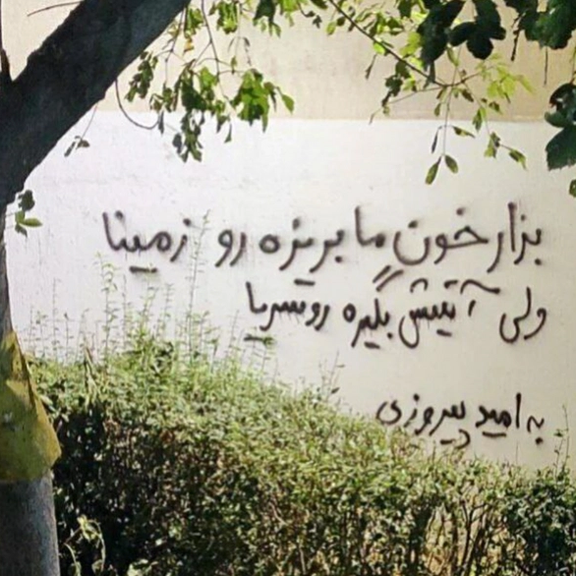 بزار خون ما بریزه رو زمینا
ولی آتیش بگیره روسریا
به امید پیروزی